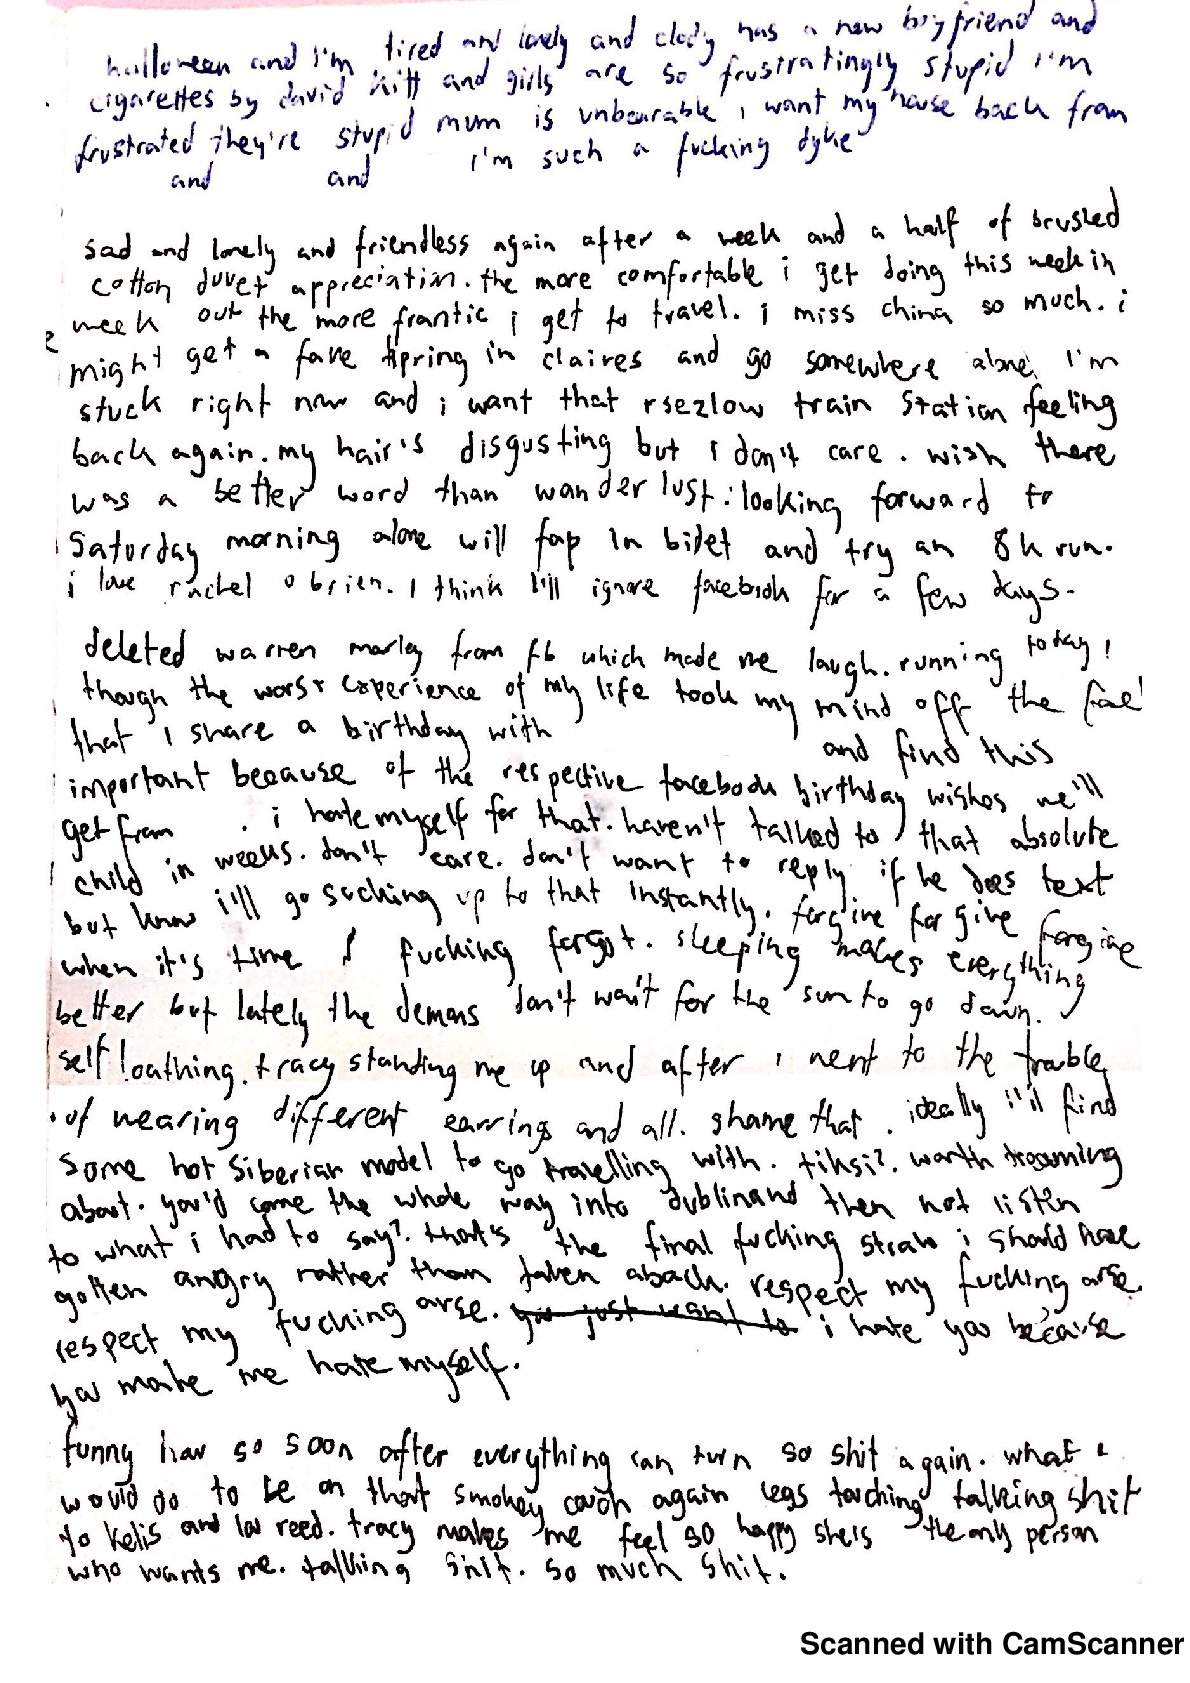 halloween and i'm tired and lonely and clody has a new boyfriend and
cigarettes by david kitt and girls are so frustratingly stupid i'm
frustrated they're stupid mum is unbearable i want my house back from
and and i'm such a fucking dyke
sad and lonely and friendless again after a week and a half of brushed
cotton duvet appreciation. the more comfortable i get doing this week in
week out the more frantic i get to travel. i miss china so much. i
might get a fake lipring in claires and go somewhere alone. I'm
stuck right now and i want that train station feeling
back again. my hair's disgusting but i don't care. wish there
was a better word than wanderlust. looking forward to
Saturday morning alone will fap in bidet and try an 8k run.
i love rachel obrien. I think I'll ignore facebook for a few days.
deleted warren marley from fb which made me laugh. running today!
though the worst experience of my life took my mind off the fac
that I share a birthday with and find this
important because of the respective facebook birthday wishes we'll
get from . i hate myself for that. haven't talked to that absolute
child in weeks. don't care. don't want to reply if he does text
but know i'll go sucking up to that instantly. forgive forgive forgive
when it's time I fucking forgot. sleeping makes everything
better but lately the demons don't wait for the sun to go down.
self loathing. tracy standing me up and after i went to the trouble
of wearing different earrings and all. shame that. ideally i'll find
some hot Siberian model to go travelling with. tiksi?. worth
about. you'd come the whole way into dublin and then not listen
to what i had to say?. that's the final fucking straw i should have
gotten angry rather than taken aback. respect my fucking arse.
respect my fucking arse. you just want to i hate you because
you make me hate myself.
funny how so soon after everything can turn so shit again. what i
would do to be on that smokey couch again legs touching talking shit
to kelis and lou reed. tracy makes me feel so happy she's the only person
who wants me. talking shit. so much shit.
Scanned with CamScanner